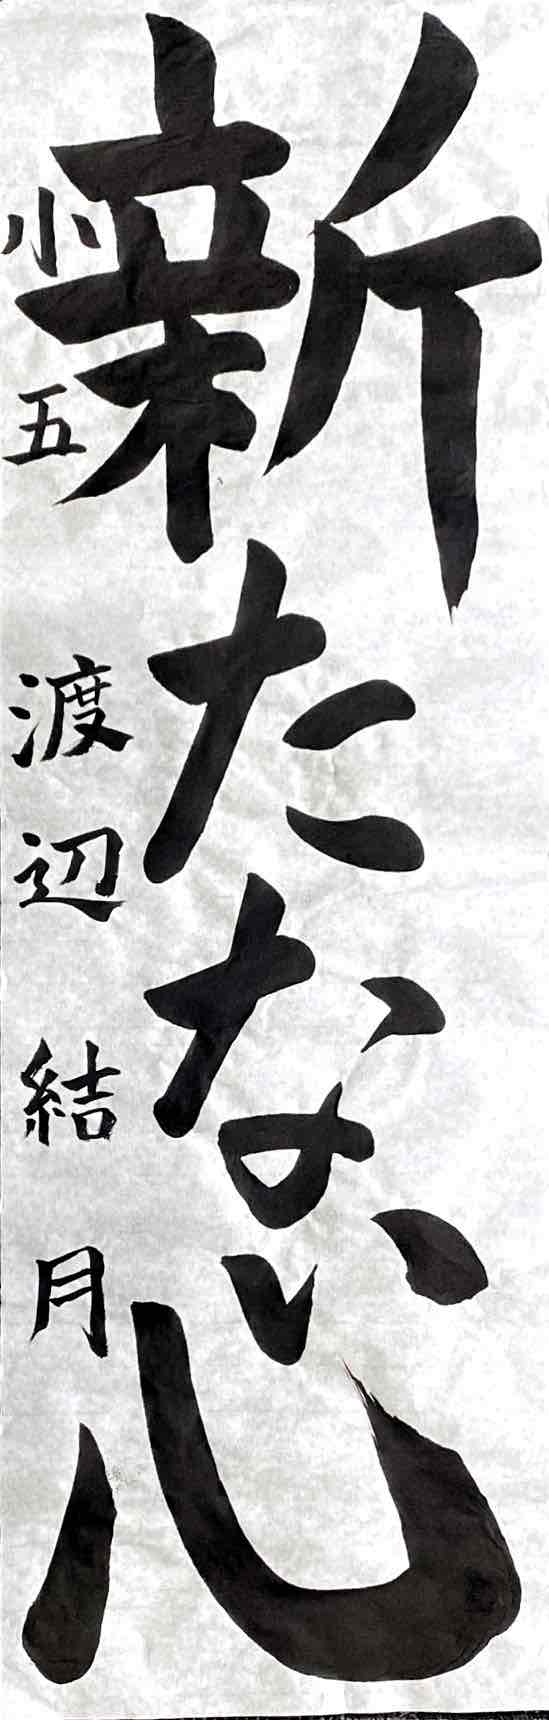 新たな心
小五 渡辺結月